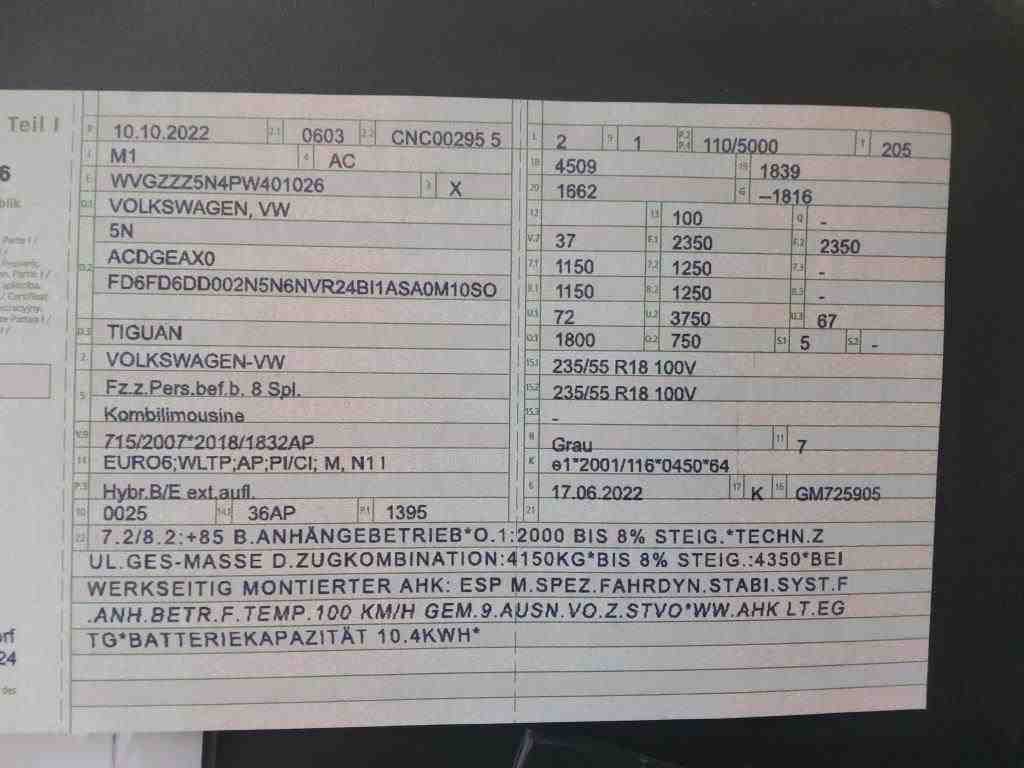 Teil I
B 10.10.2022 2.1 0603 2.2 CNC00295 5
J M1 4 AC
E WVGZZZ5N4PW401026 3 X
D.1 VOLKSWAGEN, VW
5N
D.2 ACDGEAX0
FD6FD6DD002N5N6NVR24BI1ASA0M10SO
D.3 TIGUAN
2 VOLKSWAGEN-VW
5 Fz.z.Pers.bef.b. 8 Spl.
Kombilimousine
V.9 715/2007*2018/1832AP
14 EURO6;WLTP;AP;PI/CI; M, N1 I
P.3 Hybr.B/E ext.aufl.
10 0025 14.1 36AP P.1 1395
L 2 9 1 P.2 P.4 110/5000 T 205
18 4509 19 1839
20 1662 G –1816
12 13 100 Q -
V.7 37 F.1 2350 F.2 2350
7.1 1150 7.2 1250 7.3 -
8.1 1150 8.2 1250 8.3 -
U.1 72 U.2 3750 U.3 67
O.1 1800 O.2 750 S.1 5 S.2 -
15.1 235/55 R18 100V
15.2 235/55 R18 100V
15.3 -
R Grau 11 7
K e1*2001/116*0450*64
6 17.06.2022 17 K 16 GM725905
21
22 7.2/8.2:+85 B.ANHÄNGEBETRIEB*O.1:2000 BIS 8% STEIG.*TECHN.Z
UL.GES-MASSE D.ZUGKOMBINATION:4150KG*BIS 8% STEIG.:4350*BEI
WERKSEITIG MONTIERTER AHK: ESP M.SPEZ.FAHRDYN.STABI.SYST.F
.ANH.BETR.F.TEMP.100 KM/H GEM.9.AUSN.VO.Z.STVO*WW.AHK LT.EG
TG*BATTERIEKAPAZITÄT 10.4KWH*